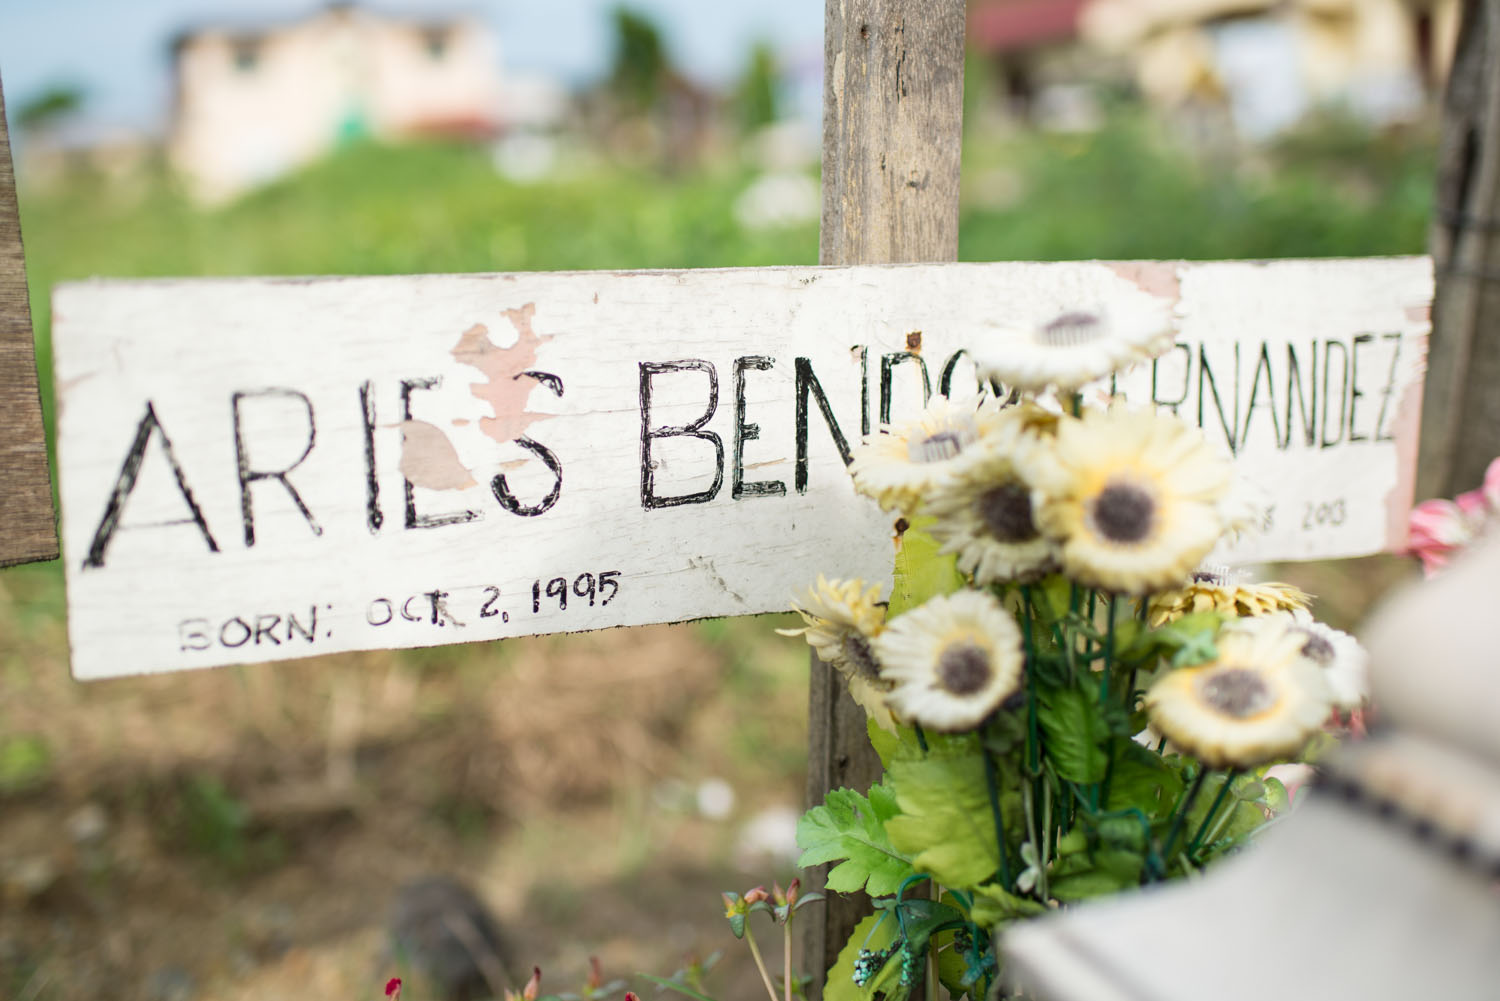 ARIES BENDO FERNANDEZ
BORN: OCT. 2, 1995 8 2013